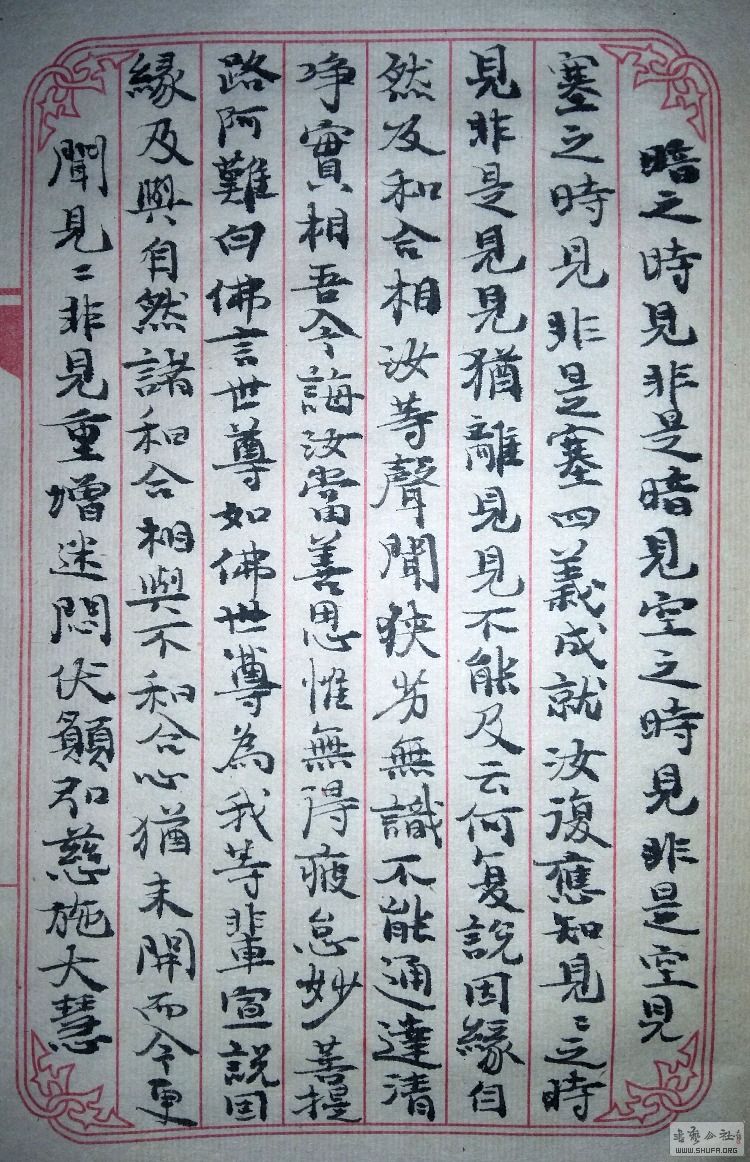 暗之時見非是暗見空之時見非是空見
塞之時見非是塞四義成就汝復應知見〻之時
見非是見見猶離見見不能及云何复説因緣自
然及和合相汝等聲聞狹劣無識不能通達清
净實相吾今誨汝當善思惟無得疲怠妙菩提
路阿難白佛言世尊如佛世尊為我等輩宣説因
緣及與自然諸和合相與不和合心猶未開而今更
聞見〻非見重增迷悶伏願弘慈施大慧
WWW.SHUFA.ORG